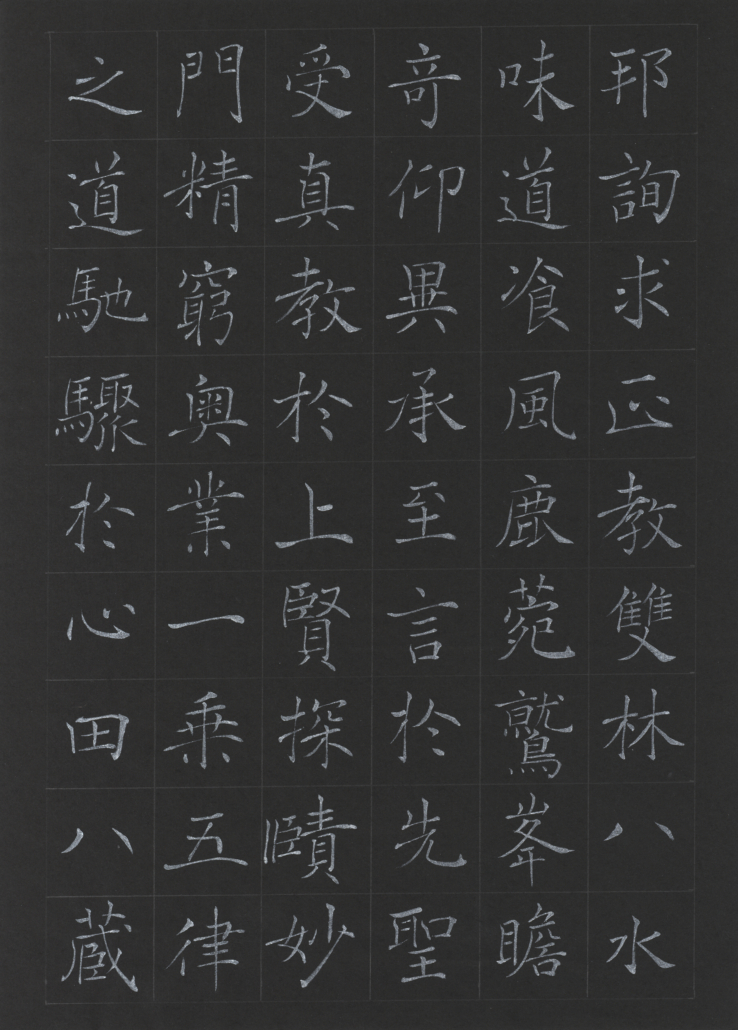 邦詢求正教雙林八水
味道飡風鹿菀鷲峯瞻
奇仰異承至言於先聖
受真教於上賢探賾妙
門精窮奥業一乗五律
之道馳驟於心田八蔵